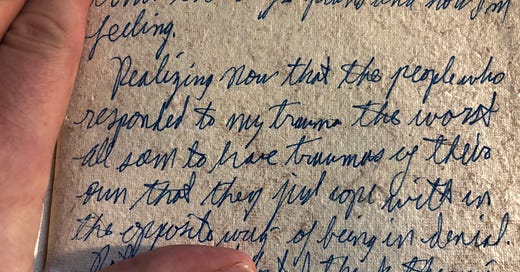 and how I'm
feeling.
Realizing now that the people who
responded to my trauma the worst
all seem to have traumas of their
own that they just cope with in
the opposite way - of being in denial.